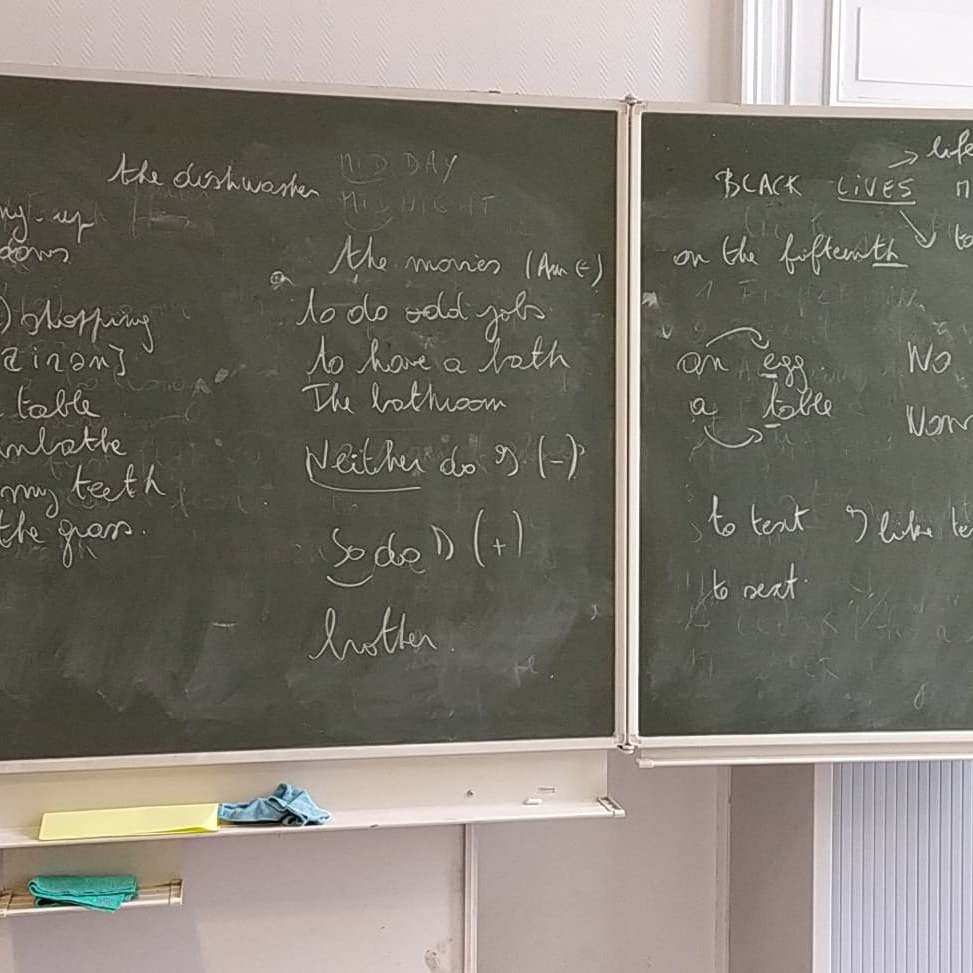 the dishwasher
MID DAY
MIDNIGHT
ny-up
oows
) shopping
table
nbathe
my teeth
the grass.
the movies (Am E)
to do odd jobs
to have a bath
The bathroom
Neither do I (-)
So do I (+)
brother.
life
BLACK LIVES M
to
on the fifteenth
an egg
a table
No
Non
to text
I like te
to sext.